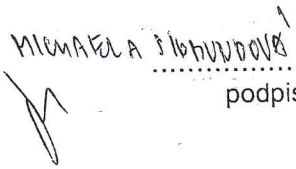 MICHAELA ZIGMUNDOVÁ
podpis